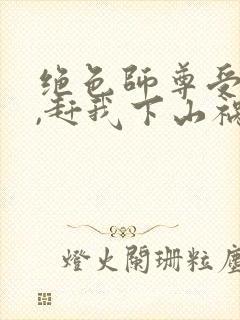 绝色师尊受
,赶我下山祸
燈火闌珊粒塵